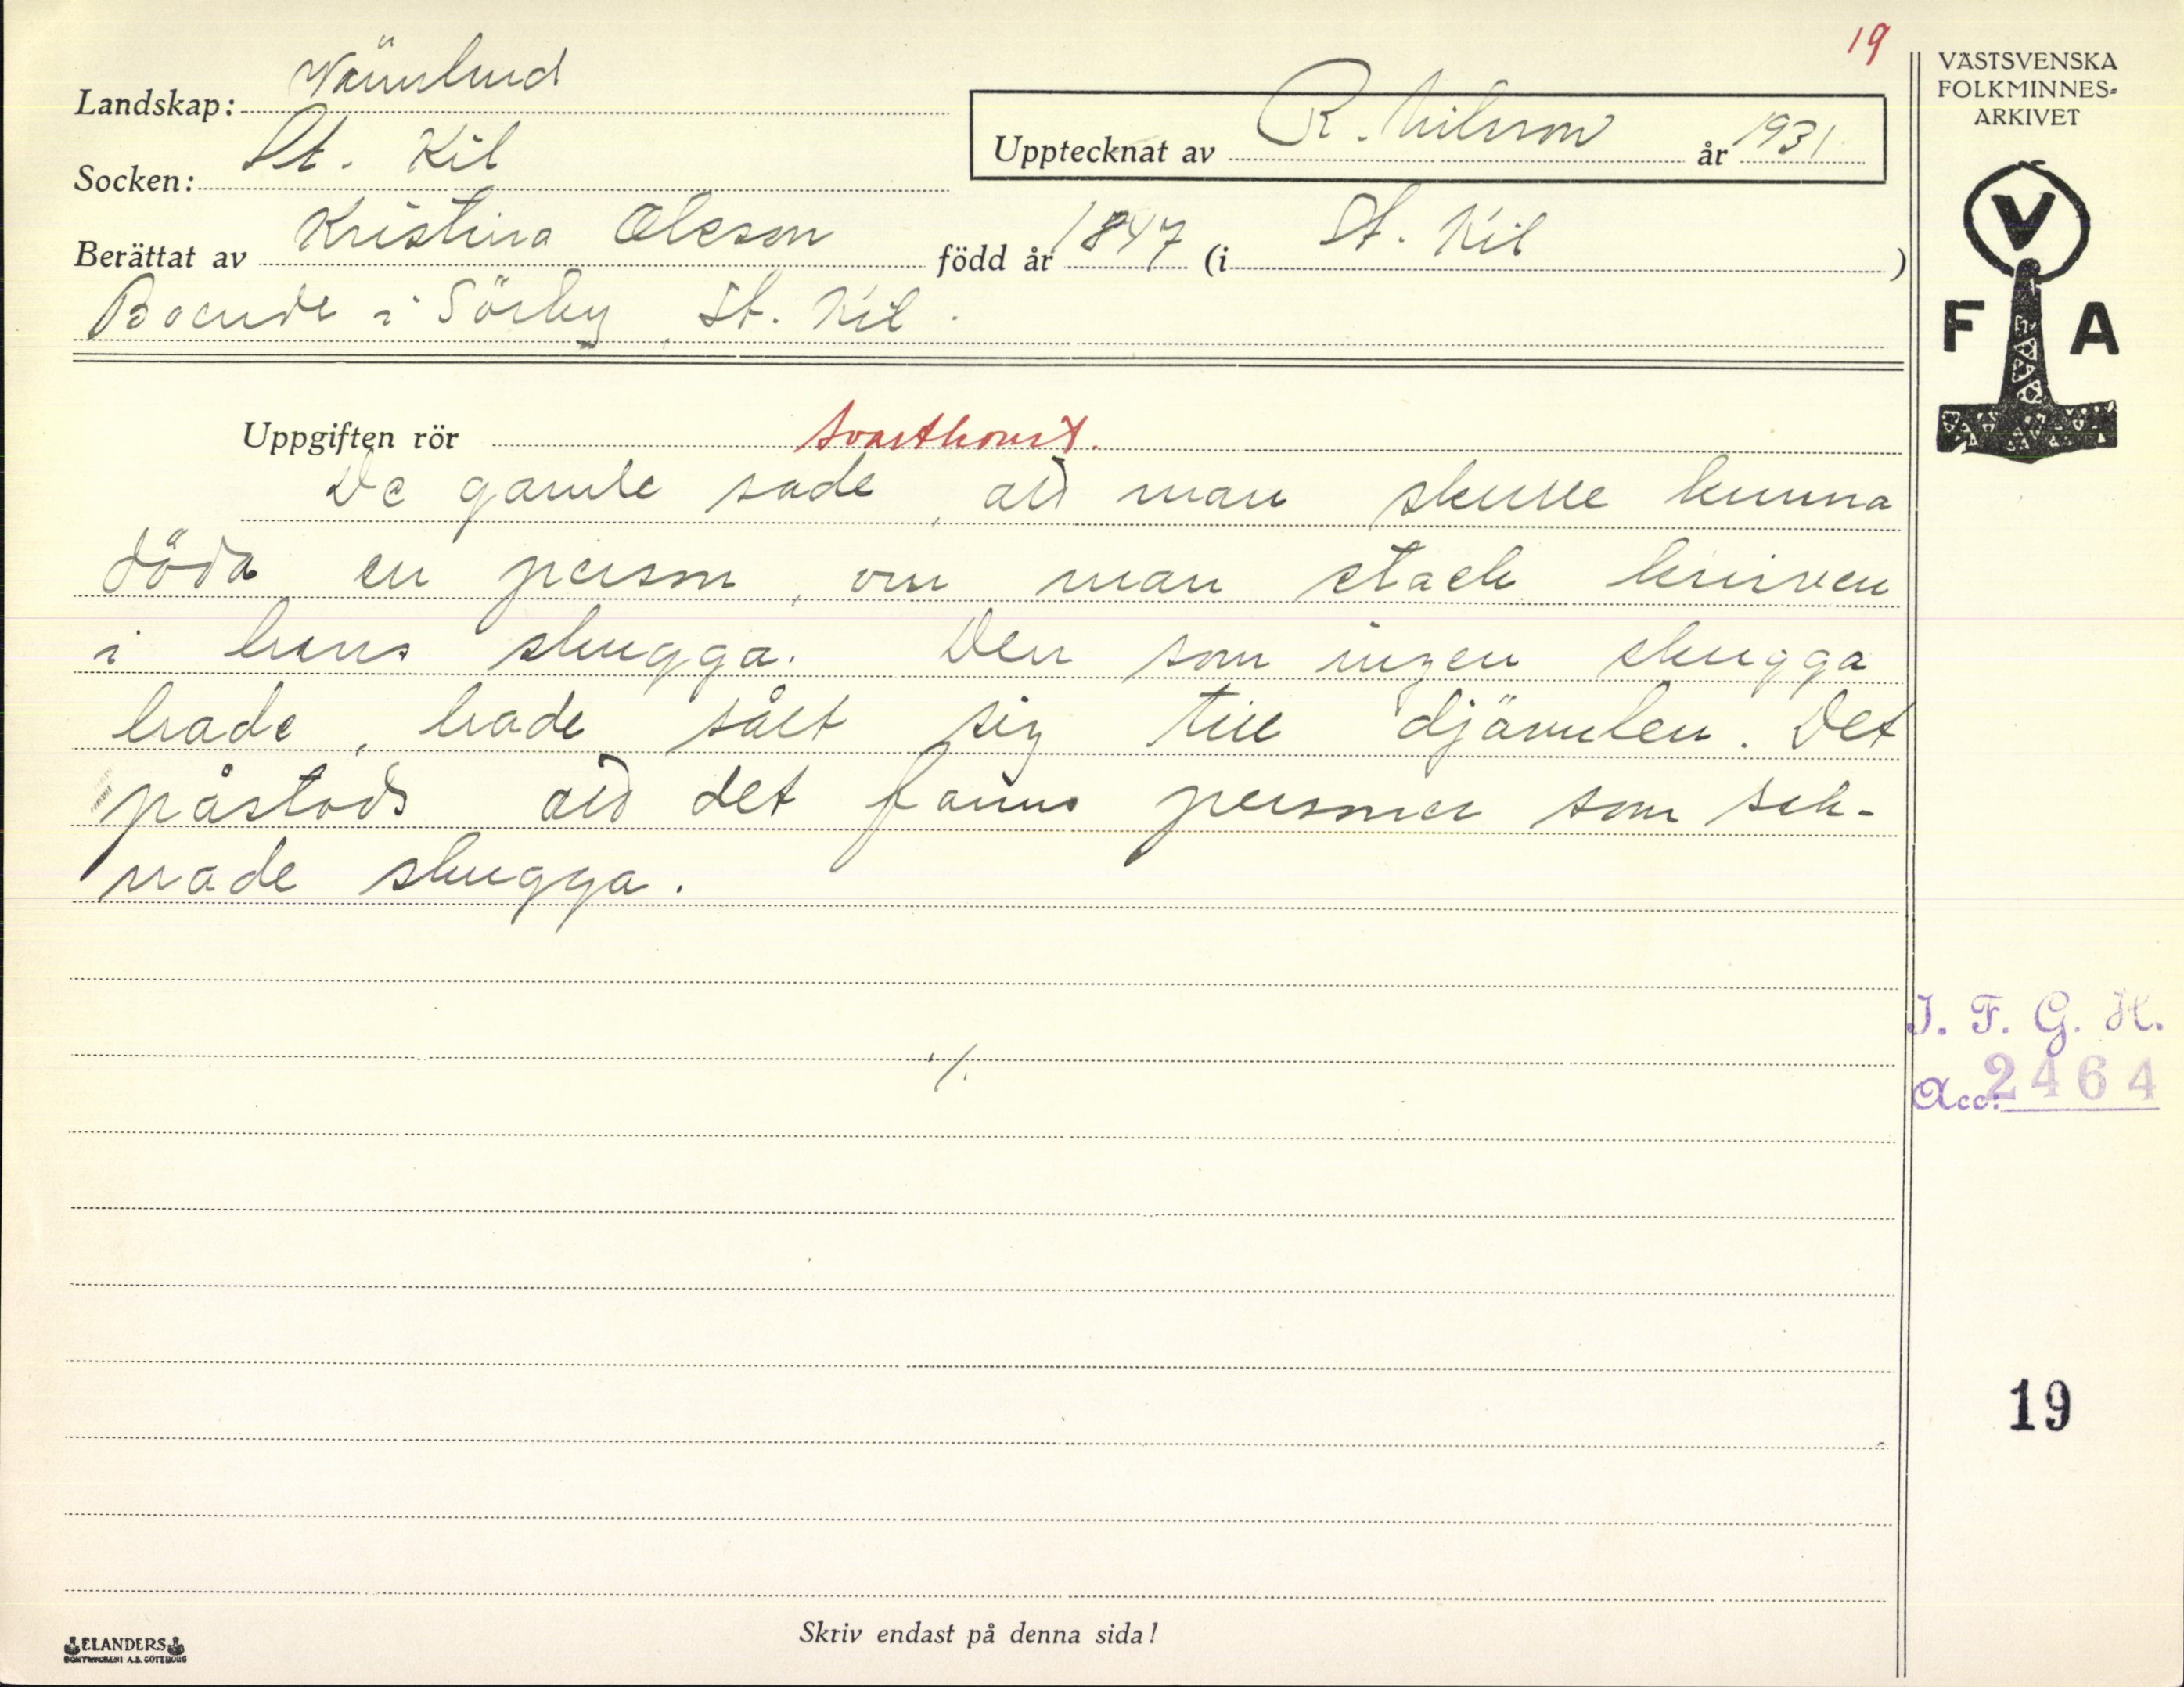 19
VÄSTSVENSKA
FOLKMINNES-
ARKIVET
Landskap: Värmland
Upptecknat av R. Nilsson år 1931
Socken: St. Kil
Berättat av Kristina Olsson född år 1847 (i St. Kil)
Boende i Sörby, St. Kil.
V
F A
Uppgiften rör svartkonst.
De gamle sade, att man skulle kunna
döda en person, om man stack kniven
i hans skugga. Den som ingen skugga
hade, hade sålt sig till djävulen. Det
påstods att det fanns personer som sak-
nade skugga.
./.
I. F. G. H.
Acc: 2464
19
Skriv endast på denna sida!
ELANDERS
BOKTRYCKERI A.B. GÖTEBORG